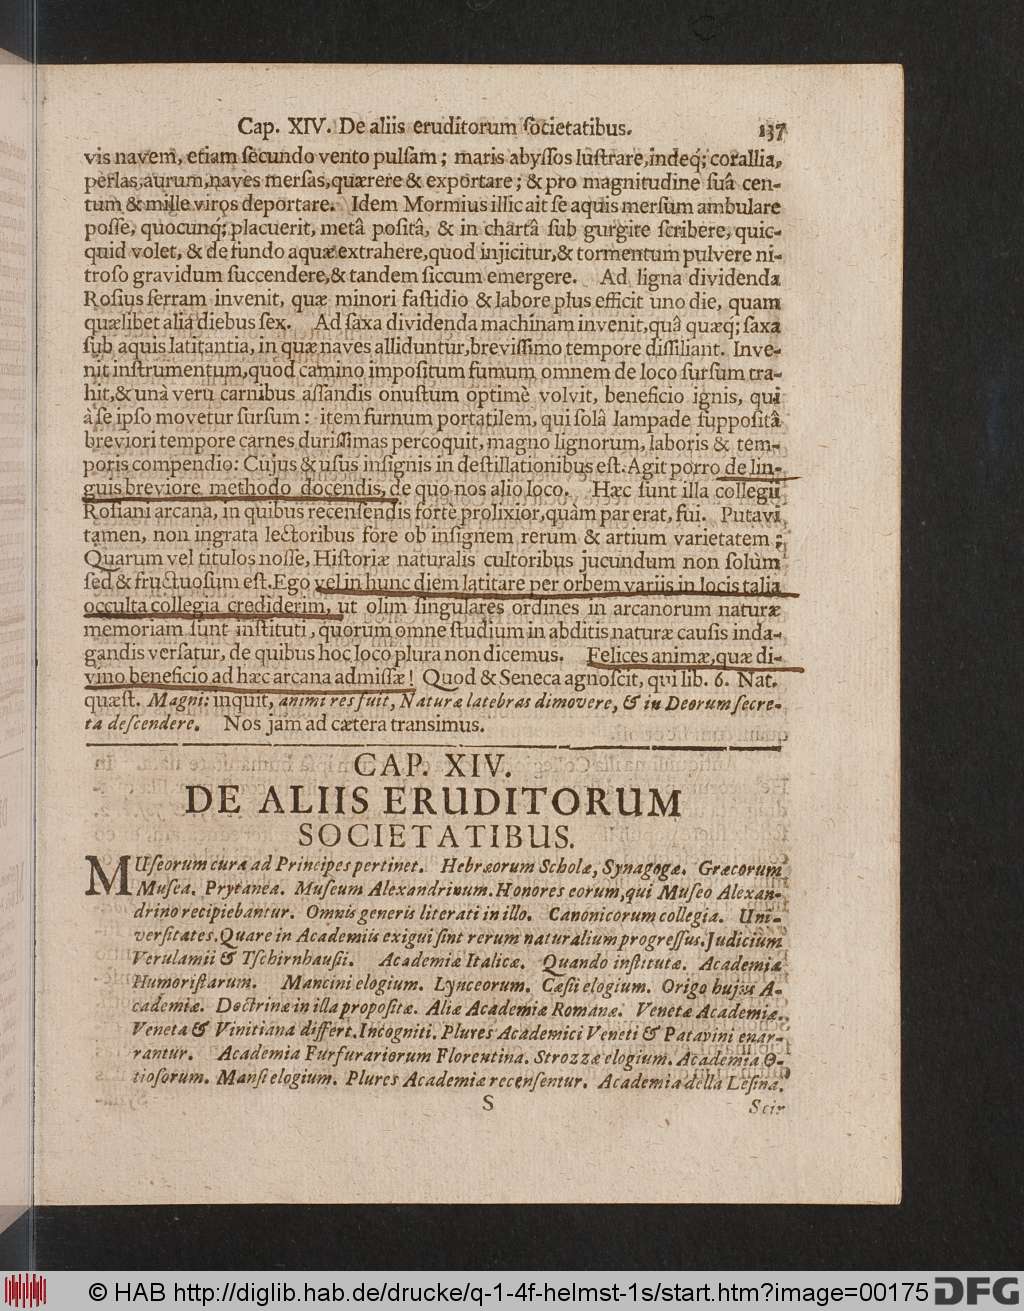 Cap. XIV. De aliis eruditorum ſocietatibus. 137
vis navem, etiam ſecundo vento pulſam; maris abyſſos luſtrare, indeq; corallia,
perlas, aurum, naves merſas, quærere & exportare; & pro magnitudine ſuâ cen-
tum & mille viros deportare. Idem Mormius illic ait ſe aquis merſum ambulare
poſſe, quocunq; placuerit, metâ poſitâ, & in chartâ ſub gurgite ſcribere, quic-
quid volet, & de fundo aquæ extrahere, quod injicitur, & tormentum pulvere ni-
troſo gravidum ſuccendere, & tandem ſiccum emergere. Ad ligna dividenda
Roſius ſerram invenit, quæ minori faſtidio & labore plus efficit uno die, quam
quælibet alia diebus ſex. Ad ſaxa dividenda machinam invenit, quâ quæq; ſaxa
ſub aquis latitantia, in quæ naves alliduntur, breviſſimo tempore diſſiliant. Inve-
nit inſtrumentum, quod camino impoſitum fumum omnem de loco ſurſum tra-
hit, & unà veru carnibus aſſandis onuſtum optimè volvit, beneficio ignis, qui
à ſe ipſo movetur ſurſum: item furnum portatilem, qui ſolâ lampade ſuppoſitâ
breviori tempore carnes duriſſimas percoquit, magno lignorum, laboris & tem-
poris compendio: Cujus & uſus inſignis in deſtillationibus eſt. Agit porro de lin-
guis breviore methodo docendis, de quo nos alio loco. Hæc ſunt illa collegii
Roſiani arcana, in quibus recenſendis fortè prolixior, quàm par erat, fui. Putavi
tamen, non ingrata lectoribus fore ob inſignem rerum & artium varietatem;
Quarum vel titulos noſſe, Hiſtoriæ naturalis cultoribus jucundum non ſolùm
ſed & fructuoſum eſt. Ego vel in hunc diem latitare per orbem variis in locis talia
occulta collegia crediderim, ut olim ſingulares ordines in arcanorum naturæ
memoriam ſunt inſtituti, quorum omne ſtudium in abditis naturæ cauſis inda-
gandis verſatur, de quibus hoc loco plura non dicemus. Felices animæ, quæ di-
vino beneficio ad hæc arcana admiſſæ! Quod & Seneca agnoſcit, qui lib. 6. Nat.
quæſt. Magni: inquit, animi res fuit, Naturæ latebras dimovere, & in Deorum ſecre-
ta deſcendere. Nos jam ad cætera transimus.
CAP. XIV.
DE ALIIS ERUDITORUM
SOCIETATIBUS.
MUſeorum cura ad Principes pertinet. Hebræorum Scholæ, Synagogæ. Græcorum
Muſea. Prytanea. Muſeum Alexandrinum. Honores eorum, qui Muſeo Alexan-
drino recipiebantur. Omnis generis literati in illo. Canonicorum collegia. Uni-
verſitates. Quare in Academiis exigui ſint rerum naturalium progreſſus. Judicium
Verulamii & Tſchirnhauſii. Academiæ Italicæ. Quando inſtitutæ. Academia
Humoriſtarum. Mancini elogium. Lynceorum. Cæſii elogium. Origo hujus A-
cademiæ. Doctrinæ in illa propoſitæ. Aliæ Academiæ Romanæ. Venetæ Academiæ.
Veneta & Vinitiana differt. Incogniti. Plures Academici Veneti & Patavini enar-
rantur. Academia Furfurariorum Florentina. Strozzæ elogium. Academia O-
tioſorum. Manſi elogium. Plures Academiæ recenſentur. Academia della Leſina.
S Scir
© HAB http://diglib.hab.de/drucke/q-1-4f-helmst-1s/start.htm?image=00175 DFG